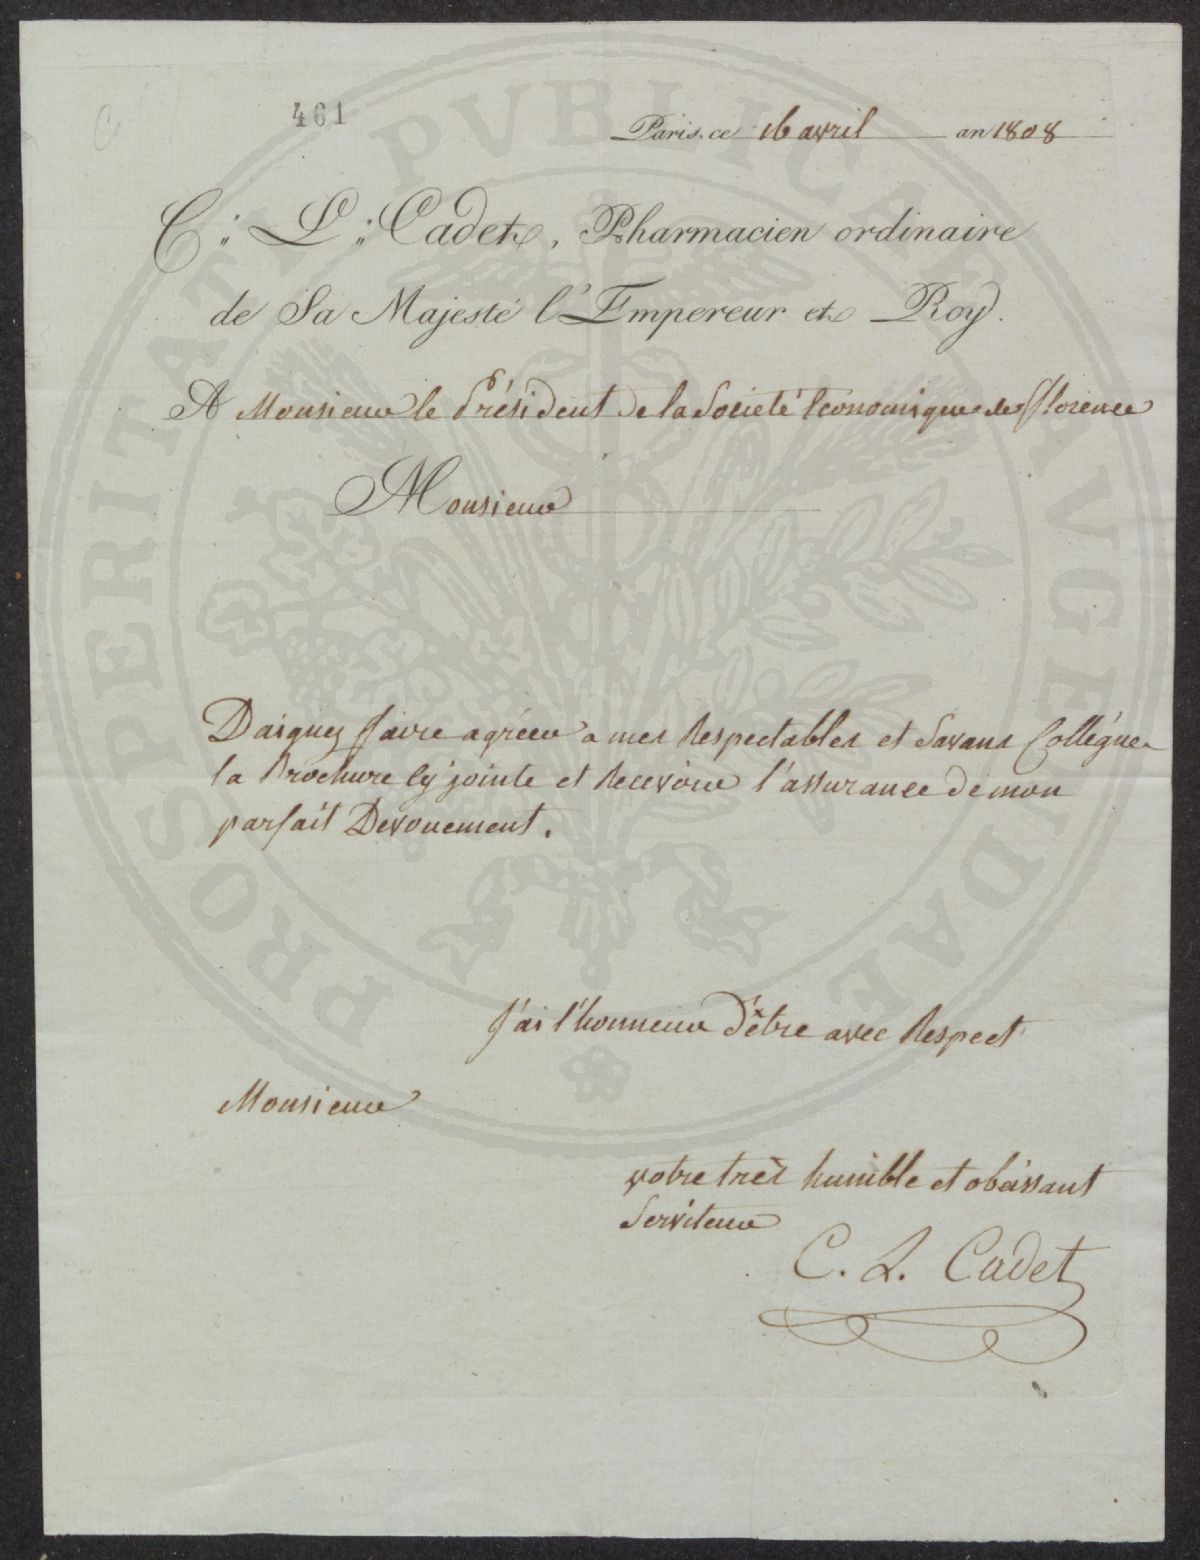 461
Paris, ce 16 avril an 1808
C. L. Cadet, Pharmacien ordinaire
de Sa Majesté l'Empereur et Roy.
A Monsieur le Président de la Société Economique de Florence
Monsieur
Daignez faire agréer a mes Respectables et Savans Collégues
la Brochure Cy jointe et Recevoir l'assurance de mon
parfait Devouement.
J'ai l'honneur d'être avec Respect
Monsieur
votre très humble et obéissant
Serviteur
C. L. Cadet
PROSPERITATI PVBLICAE AVGENDAE